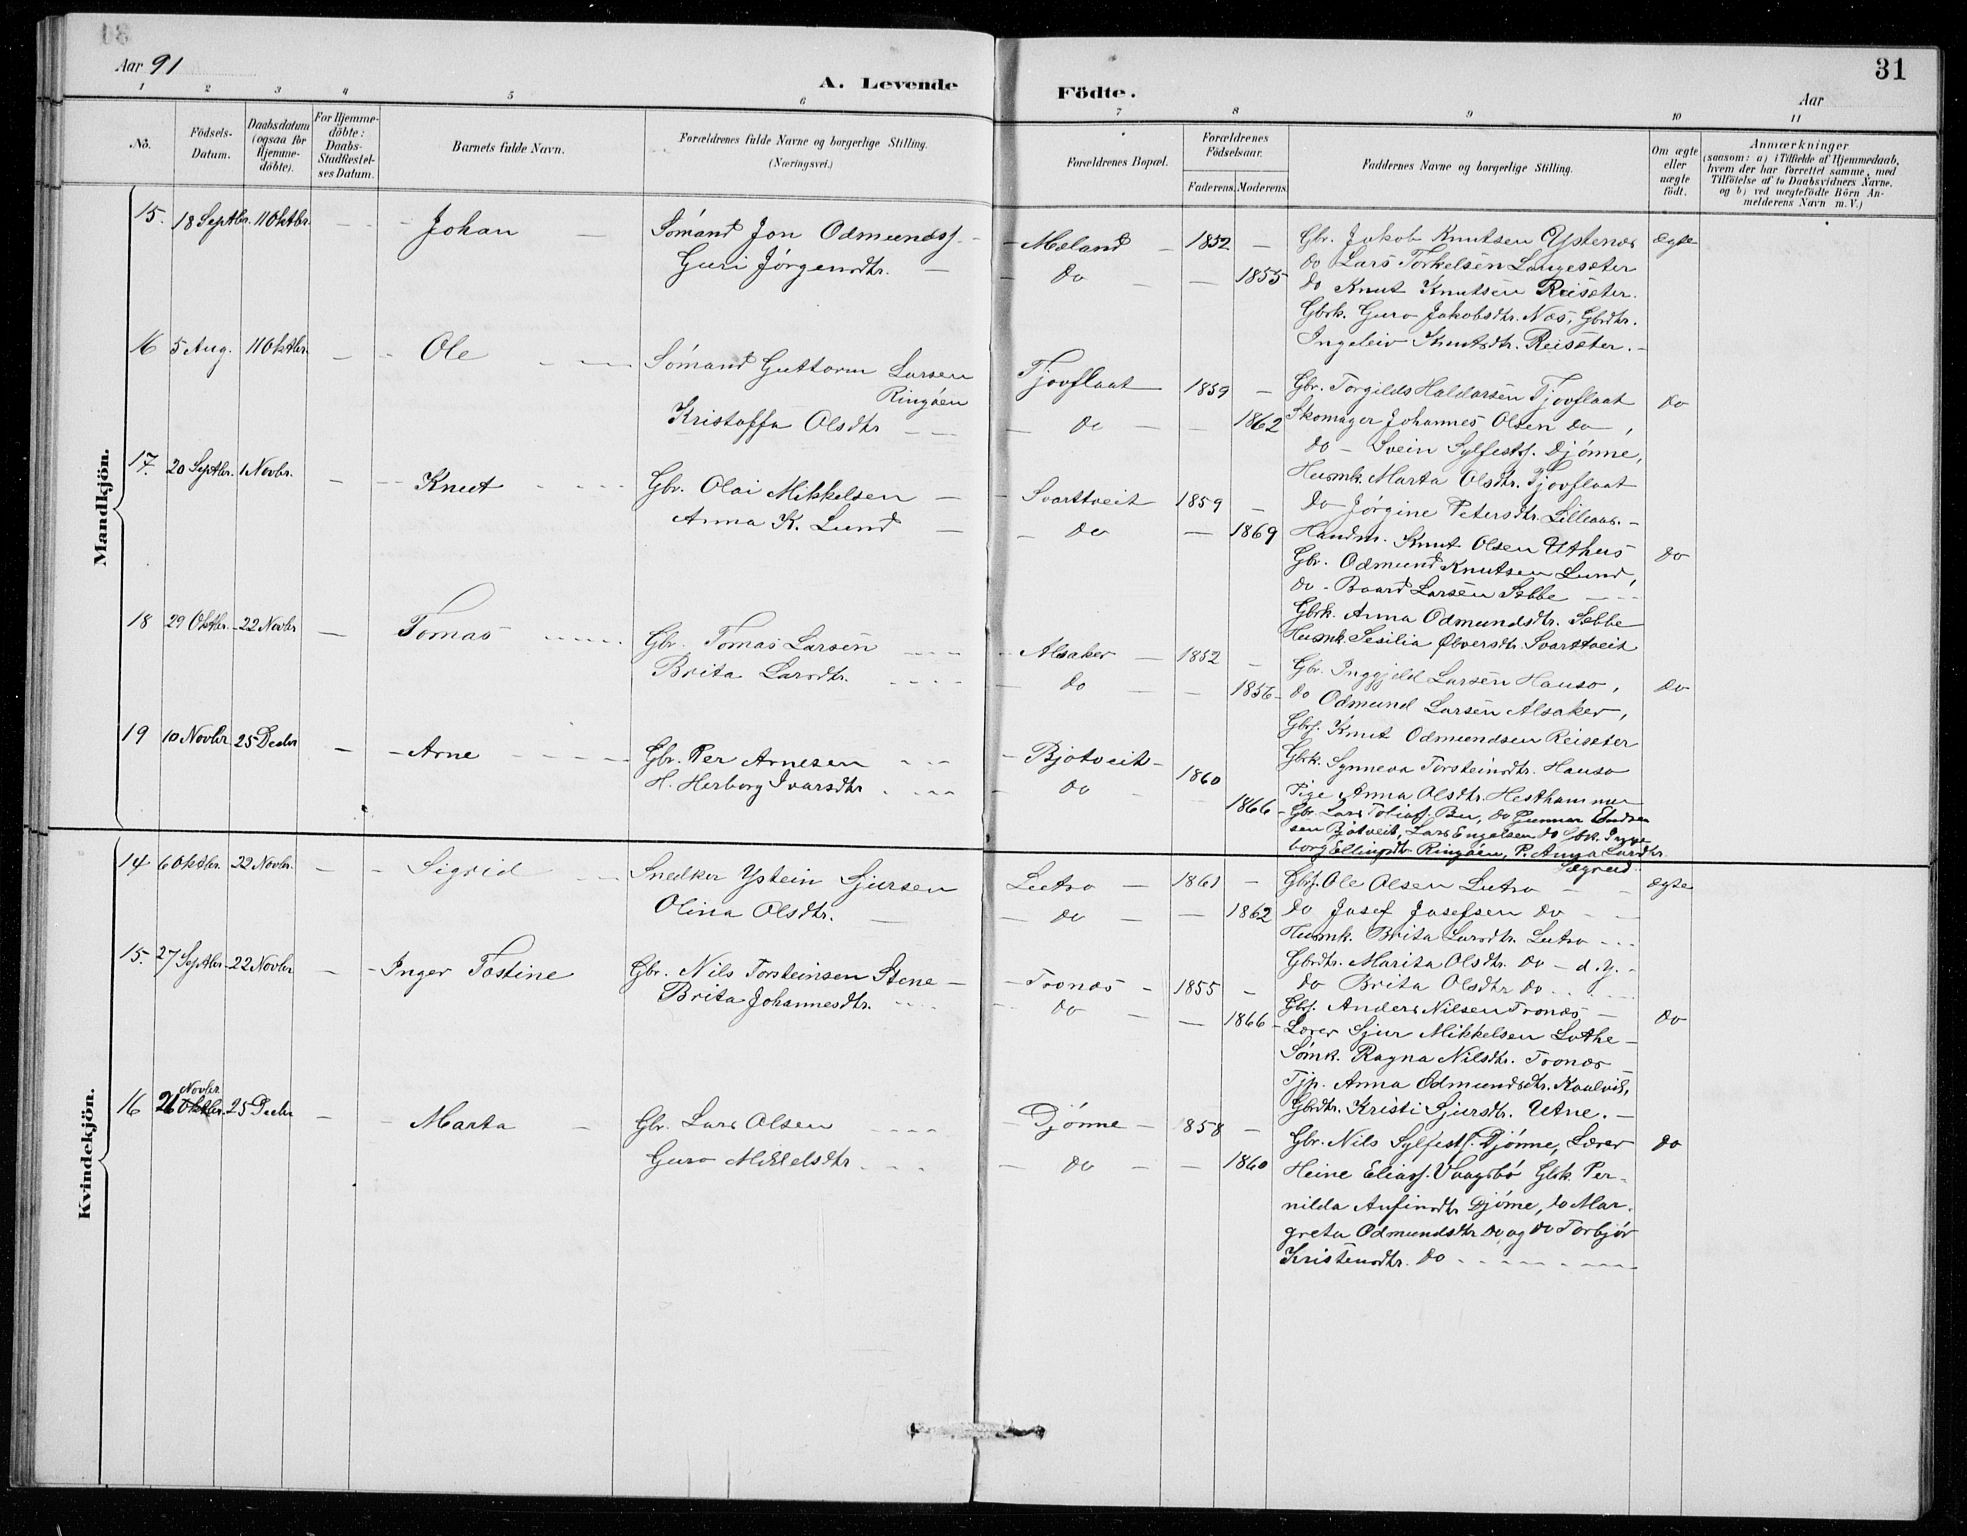 31
Aar 91
A. Levende Födte.
Aar
1 2 3 4 5 6 7 8 9 10 11
No.
Födsels-
Datum.
Daabsdatum
(ogsaa for
Hjemme-
döbte).
For Hjemme-
döbte:
Daabs-
Stadfæstel-
ses Datum.
Barnets fulde Navn.
Forældrenes fulde Navne og borgerlige Stilling.
(Næringsvei.)
Forældrenes Bopæl.
Forældrenes
Födselsaar.
Faderens. Moderens.
Faddernes Navne og borgerlige Stilling.
Om ægte
eller
uægte
födt.
Anmærkninger
(saasom: a) i Tilfælde af Hjemmedaab,
hvem der har forrettet samme, med
Tilföielse af to Daabsvidners Navne,
og b) ved uægtefödte Börn An-
melderens Navn m. V.)
Mandkjön.
15. 18 Septbr. 11 Oktbr. - - Johan -
Sómand Jon Odmundsf. -
Guri Jórgensdtr. -
- Mæland - 1852 -
do - - 1855
Gbr. Jakob Knutsen Ystenæs
do Lars Torkelsen Langesæter
do Knut Knutsen Reisæter.
Gbrk. Guro Jakobsdtr. Næs, Gbrdtr.
Ingeleiv Knutsdtr. Reisæter. -
ægte
16 5 Aug. 11 Oktbr. - - Ole - - -
Sómand Guttorm Larsen
Ringóen
Kristoffa Olsdtr - -
Tjovflaat 1859 -
- do - - 1862
Gbr. Torgilds Haldorsen Tjovflaat
Skomager Johannes Olsen do,
do - Svein Sylfestsf. Djónne,
Husmk. Marta Olsdtr. Tjovflaat
do Jórgine Petersdtr. Lilleaas. -
do
17. 20 Septbr. 1 Novbr. - - Knut - - -
Gbr. Olai Mikkelsen -
Anna K. Lund -
- Svartveit 1859 -
- do - 1869
Handm. Knut Olsen Uthus
Gbr. Odmund Knutsen Lund,
do - Baard Larsen Sebbe - -
Gbrk. Anna Odmundsdtr. Sebbe
Husmk. Sesilia Ølversdtr. Svartveit
do
18 29 Oktbr. - 22 Novbr - Tomas - - -
Gbr. Tomas Larsen - -
Brita Larsdtr. - - -
- Alsaker - 1852 -
- do - - 1856 -
Gbr. Inggjeld Larsen Hauso,
do Odmund Larsen Alsaker,
Gbrs. Knut Odmundsen Reisæter
Gbrk. Synneva Torsteinsdtr. Hauso
Pige Anna Olsdtr. Hesthammer
do
19 10 Novbr. 25 Decbr - - Arne - - - -
Gbr. Per Arnesen - -
H. Herborg Ivarsdtr. - -
- Bjotveit - 1860
- do - - 1866 -
Gbr. Lars Bu, do Gunnar
Bjotveit, Lars Engelsen do Gbk. Inge-
borg Ellingsdtr. Ringóen, P. Anna Larsdtr.
Kvindekjön.
14 6 Oktbr. 22 Novbr. - - Sigrid - -
Snedker Ystein Sjursen
Olina Olsdtr. -
Lutro - 1861 -
- do - - 1862
Gbrs. Ole Olsen Lutro - - ægte
do Josef Josefsen do - -
Husmk. Brita Larsdtr. Lutro - - -
Gbrdtr. Marita Olsdtr. do - d. y. -
do Brita Olsdtr do - - -
15. 27 Septbr - 22 Novbr - - Inger Tostine
Gbr. Nils Torsteinsen Stene -
Brita Johannesdtr. - -
- Tronæs - 1855 -
- do - - 1866 -
Gbrs. Anders Nilsen Tronæs -
Lærer Sjur Mikkelsen Lothe -
Sómk. Ragna Nilsdtr. Tronæs
Tjp. Anna Odmundsdtr. Kaalvik,
Gbrdtr. Kristi Sjursdtr. Utne. -
do
Novbr
16 21 Oktbr. 25 Decbr - - Marta -
Gbr. Lars Olsen - - - -
Guro Mikkelsdtr - - -
- Djónne - 1858 -
- do - - 1860
Gbr. Nils Sylfestsf. Djónne, Lærer do
Heine Eliasf. Vaagsbó Gbk. Per-
nilda Anfinsdtr Djónne, do Mar-
greta Odmundsdtr do og do Torbjór
Kristensdtr. do - - - - - -